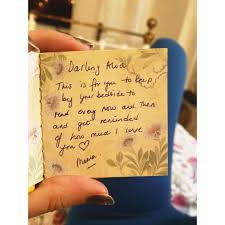 Darling Alia
This is for you to keep
by your bedside to
read every now and then
and get reminded
of how much I love
you ♡
Mama